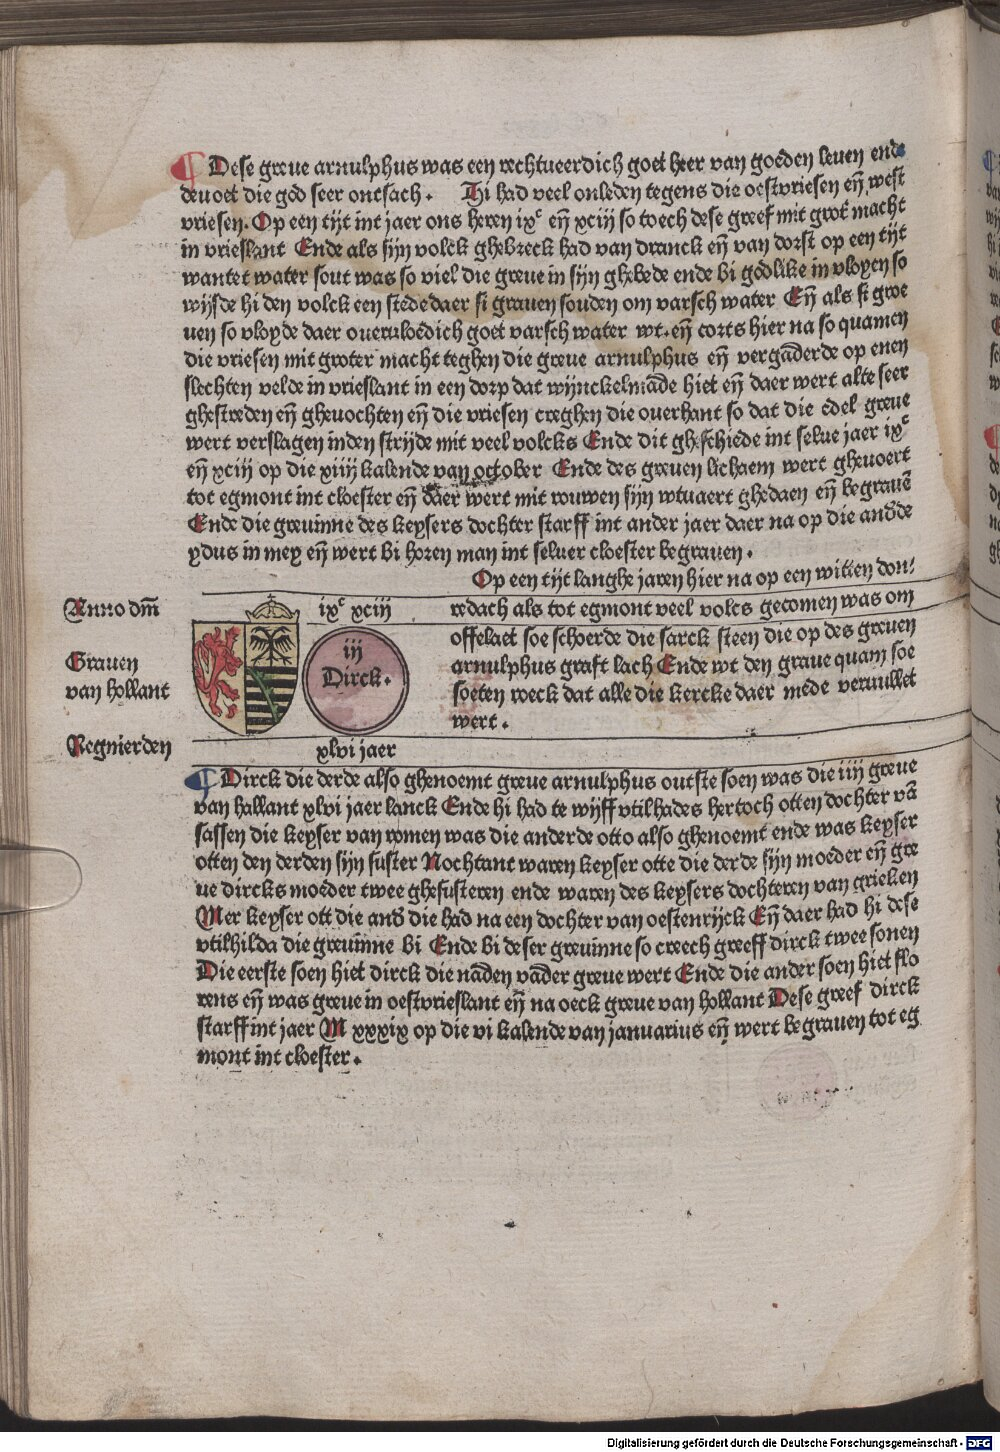 ¶ Dese greue arnulphus was een rechtueerdich goet heer van goeden leuen ende
deuoet die god seer ontsach. Hi had veel onleden tegens die oestvriesen eñ west
vriesen. Op een tijt int jaer ons heren ixᶜ eñ xciij so toech dese greef mit grot macht
in vrieslant Ende als sijn volck ghebreck had van dranck eñ van dorst op een tijt
wantet water sout was so viel die greue in sijn ghebede ende bi godlike in vloyen so
wijsde hi den volck een stede daer si grauen souden om varsch water Eñ als si groe
uen so vloyde daer oueruloedich goet varsch water wt. eñ corts hier na so quamen
die vriesen mit groter macht teghen die greue arnulphus eñ vergaderde op enen
slechten velde in vrieslant in een dorp dat wijnckelmade hiet eñ daer wert alte seer
ghestreden eñ gheuochten eñ die vriesen creghen die ouerhant so dat die edel greue
wert verslagen inden strijde mit veel volcks Ende dit gheschiede int selue jaer ixᶜ
eñ xciij op die xiiij kalende van october Ende des greuen lichaem wert gheuoert
tot egmont int cloester eñ daer wert mit rouwen sijn wtuaert ghedaen eñ begrauē
Ende die greuinne des keysers dochter starff int ander jaer daer na op die anđde
ydus in mey eñ wert bi horen man int seluer cloester begrauen.
Op een tijt langhe jaren hier na op een witten don/
Anno dm̄ ixᶜ xciij
redach als tot egmont veel volcs gecomen was om
offelaet soe schoerde die sarck steen die op des greuen
Grauen
van hollant
iij
Dirck.
arnulphus graft lach Ende wt den graue quam soe
soeten roeck dat alle die kercke daer mede veruullet
wert.
Regnierden xlvi jaer
¶ Dirck die derde also ghenoemt greue arnulphus outste soen was die iiij greue
van hallant xlvi jaer lanck Ende hi had te wijff vtilhades hertoch otten dochter vā
sassen die keyser van romen was die anderde otto also ghenoemt ende was keyser
otten den derden sijn suster Nochtant waren keyser otte die derde sijn moeder eñ gre
ue dircks moeder twee ghesusteren ende waren des keysers dochteren van grieken
Mer keyser ott die anđ die had na een dochter van oestenrijck Eñ daer had hi dese
vtilhilda die greuinne bi Ende bi deser greuinne so creech greeff dirck twee sonen
Die eerste soen hiet dirck die nāden vāder greue wert Ende die ander soen hiet flo
rens eñ was greue in oestvrieslant eñ na oeck greue van hollant Dese greef dirck
starff int jaer M xxxix op die vi kalende van januarius eñ wert begrauen tot eg
mont int cloester.
Digitalisierung gefördert durch die Deutsche Forschungsgemeinschaft - DFG